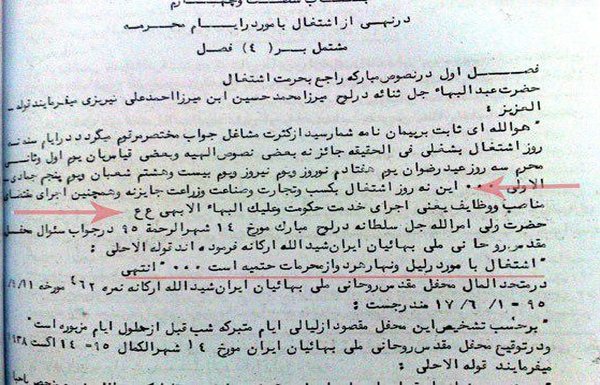 باب شصت و چهارم
در نهی از اشتغال بامور در ایام محرمه
مشتمل بر (۴) فصل
فصل اول در نصوص مبارکه راجع بحرمت اشتغال
حضرت عبدالبهاء جل ثنائه در لوح میرزا محمد حسین ابن میرزا احمد علی نیریزی میفرمایند قوله
العزیز :
" هوالله ای ثابت بر پیمان نامه شما رسید از کثرت مشاغل جواب مختصر مرقوم میگردد در ایام سنه نه
روز اشتغال بشغلی فی الحقیقه جائز نه بعضی نصوص الهیه و بعضی قیاس بان یوم اول و ثانی
محرم سه روز عید رضوان یوم هفتادم نوروز و یوم نیروز و یوم بیست و هشتم شعبان و یوم پنجم جمادی
الاولی ۰۰۰ این نه روز اشتغال بکسب و تجارت و صناعت و زراعت جایز نه و همچنین اجرای مقتضای
مناصب و وظایف یعنی اجرای خدمت حکومت و علیك البهاء الابهی ع ع
حضرت ولی امرالله جل سلطانه در لوح مبارك مورخ ۱۴ شهر الرحمة ۹۵ در جواب سئوال محفل
مقدس روحانی ملی بهائیان ایران شید الله ارکانه فرموده اند قوله الاحلی :
" اشتغال با مور در لیل و نهار هر دو از محرمات حتمیه است ۰۰۰ " انتهی
در متحد المال محفل مقدس روحانی ملی بهائیان ایران شید الله ارکانه نمره ۴۶۲ مورخه
۹۵ - ۱/ ۶/ ۱۷ مندرجست :
" بر حسب تشخیص این محفل مقصود از لیالی ایام متبرکه شب قبل از حلول ایام مزبوره است "
و در توقیع محفل مقدس روحانی ملی بهائیان ایران مورخ ۱۴ شهر الکمال ۹۵ - ۱۴ اگست ۱۹۳۸
میفرمایند قوله الاحلی :